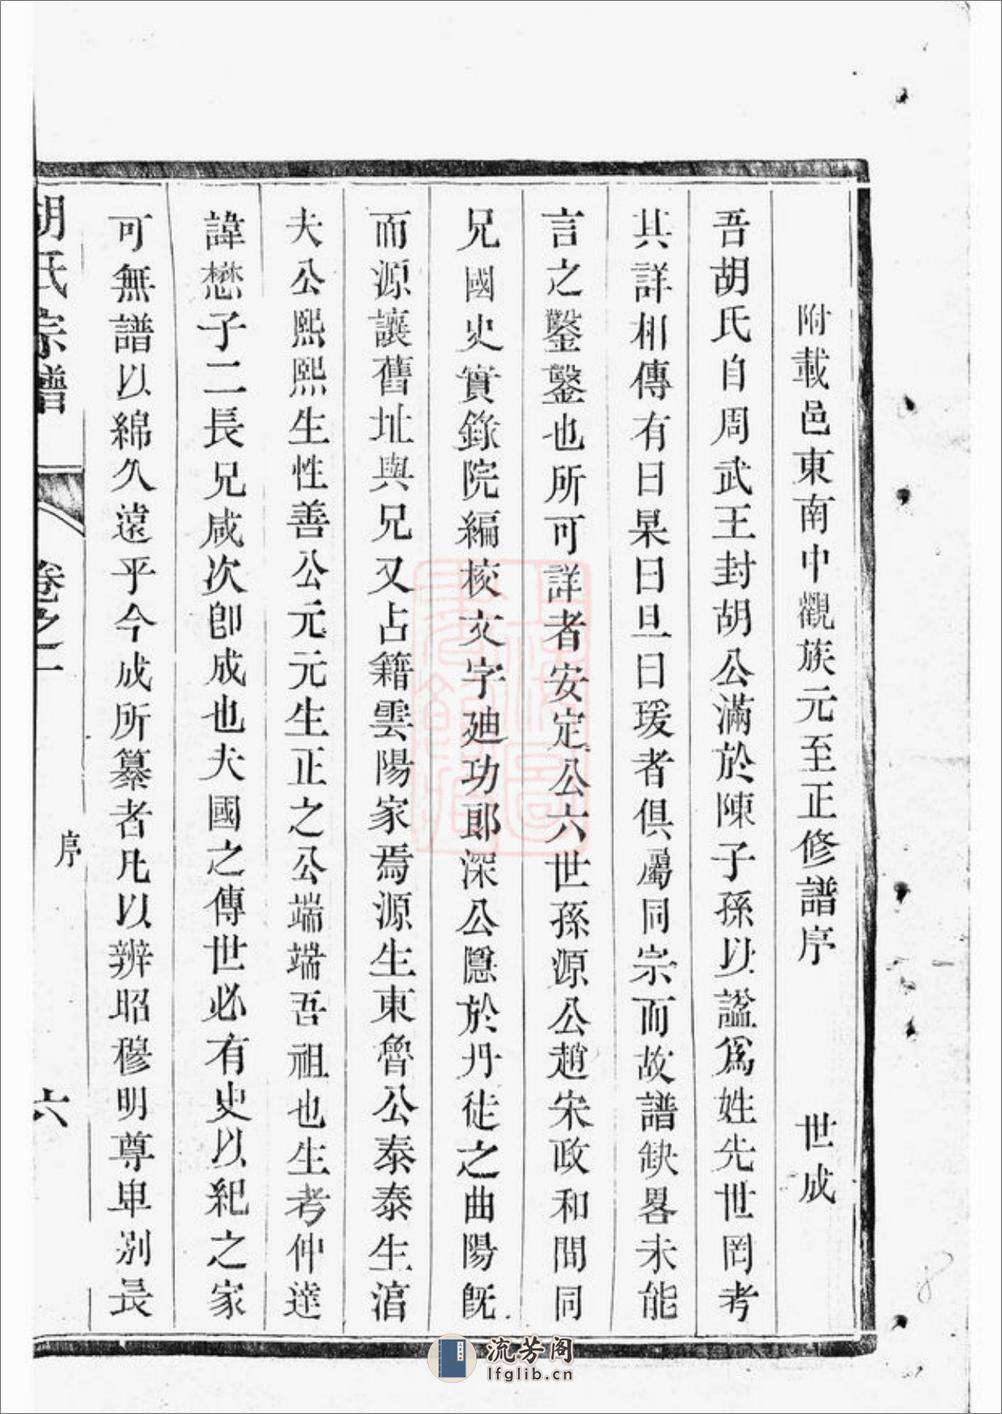 附載邑東南中觀族元至正修譜序　世成
吾胡氏自周武王封胡公滿於陳子孫以謚爲姓先世罔考
其詳相傳有曰杲曰旦曰瑗者俱屬同宗而故譜缺畧未能
言之鑿鑿也所可詳者安定公六世孫源公趙宋政和間同
兄國史實錄院編校文字廸功郎深公隱於丹徒之曲陽旣
而源讓舊址與兄又占籍雲陽家焉源生東魯公泰泰生涓
夫公熙熙生性善公元元生正之公端端吾祖也生考仲達
諱懋子二長兄咸次卽成也夫國之傳世必有史以紀之家
可無譜以綿久遠乎今成所纂者凡以辨昭穆明尊卑别長
胡氏宗譜
卷之一
序
六
8
流芳阁
lfglib.cn